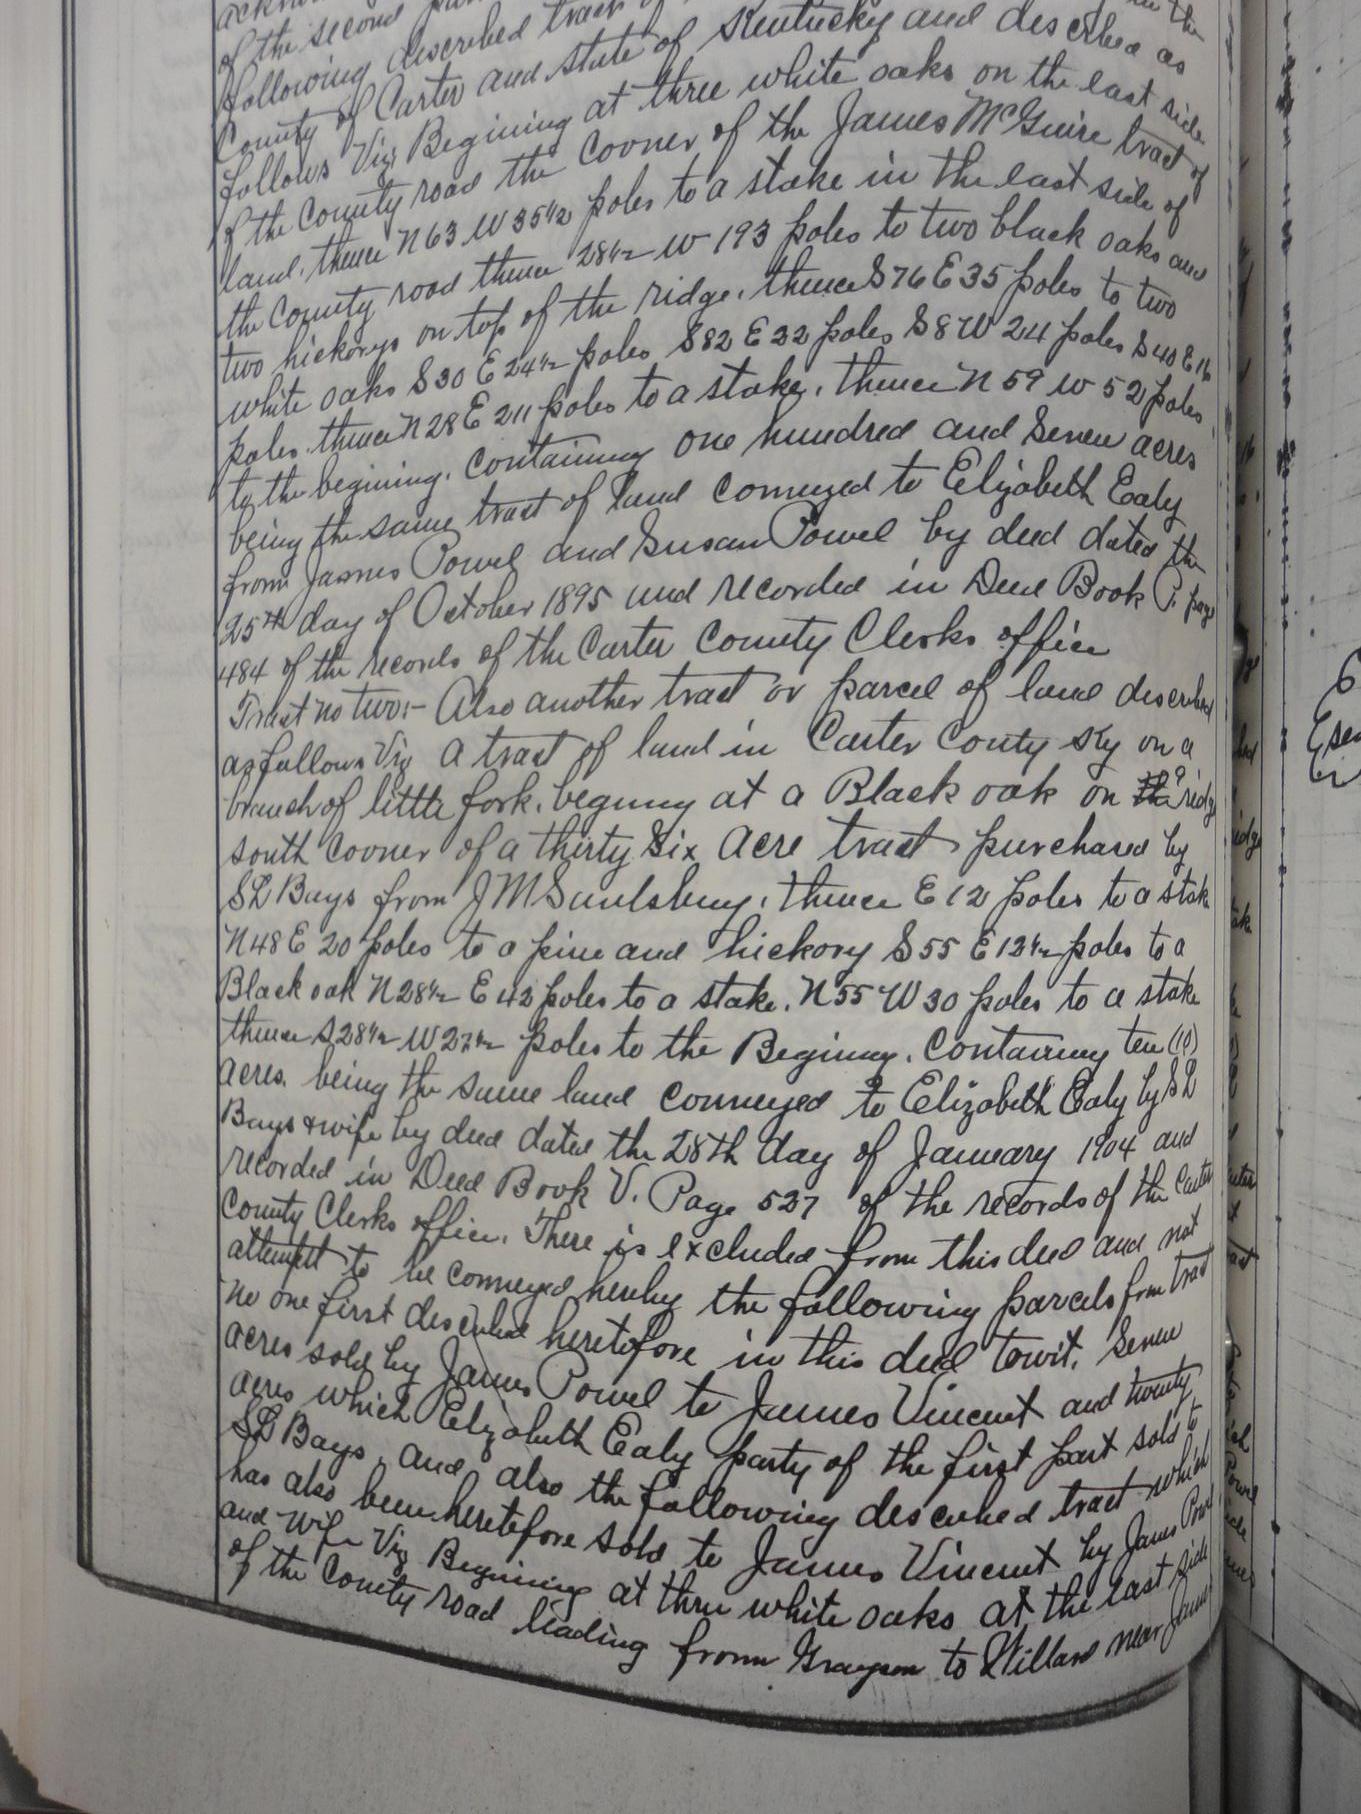 of the second
following described tract of in the
County of Carter and state of Kentucky and described as
follows Viz Begining at three white oaks on the east side
of the County road the corner of the James McGuire tract of
land, thence N63 W 35½ poles to a stake in the east side of
the County road thence 28½ W 193 poles to two black oaks and
two hickorys on top of the ridge, thence S76 E 35 poles to two
white oaks S30 E 24½ poles S82 E 22 poles S8 W 24 poles S40 E 16
poles. thence N28 E 211 poles to a stake, thence N59 W 52 poles
to the begining. Containing one hundred and Seven acres
being the same tract of land conveyed to Elizabeth Ealy
from James Powel and Susan Powel by deed dated the
25th day of October 1895 and recorded in Deed Book P. page
484 of the records of the Carter County Clerks office
Tract no two:- Also another tract or parcel of land described
as follows Viz A tract of land in Carter Conty Ky on a
branch of little fork, beginng at a Black oak on ridge
south corner of a thirty Six Acre tract purchased by
SL Bays from J M Saulsbury, thence E 12 poles to a stak
N48 E 20 poles to a pine and hickory S55 E 12½ poles to a
Black oak N28½ E 42 poles to a stake. N55 W 30 poles to a stake
thence S28½ W 27½ poles to the Beginng. Containing ten (10)
acres. being the same land conveyed to Elizabeth Ealy by SL
Bays & wife by deed dated the 28th day of January 1904 and
recorded in Deed Book V. Page 527 of the records of the Carter
County Clerks office. There is excluded from this deed and not
attempt to be conveyed hereby the following parcels from tract
no one first described heretofore in this deed towit, Seven
acres sold by James Powel to James Vincent and twenty
acres which Elizabeth Ealy party of the first part sold to
SL Bays, and also the following described tract which
has also been heretofore sold to James Vincent by James Powel
and wife Viz Begining at three white oaks at the east side
of the County road leading from Grayson to Willard near James